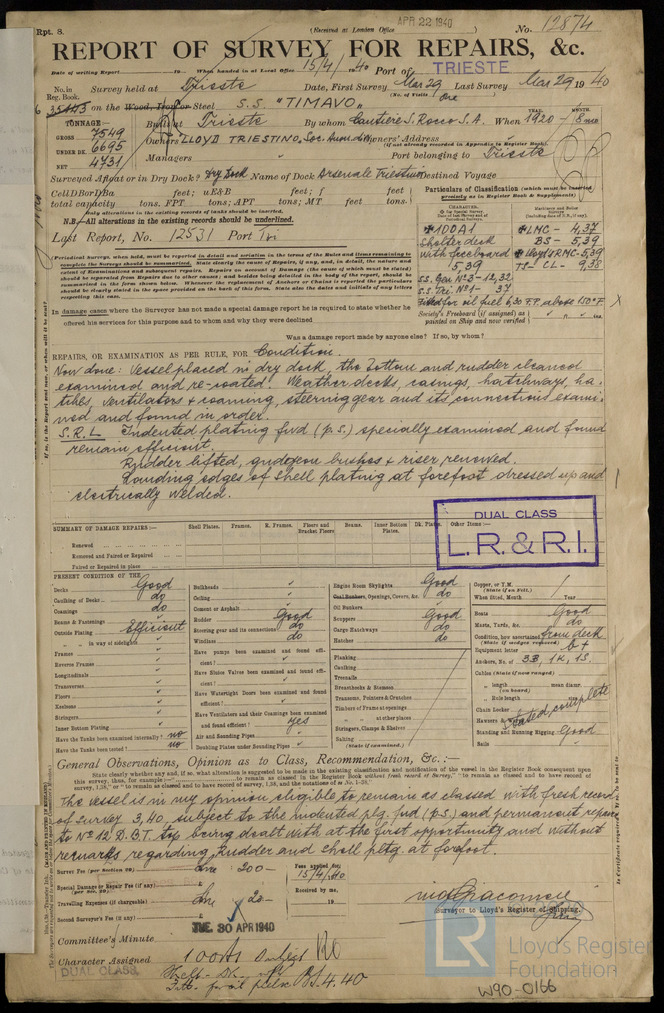 Rpt. 8.
(Received at London Office APR 22 1940
No. 12874
REPORT OF SURVEY FOR REPAIRS, &c.
Date of writing Report 19 When handed in at Local Office 15/4/1940 Port of TRIESTE
No. in Reg. Book. Survey held at Trieste Date, First Survey Mar 29 Last Survey Mar 29 1940
(No. of Visits One
on the Wood, Iron or Steel S.S. "TIMAVO"
TONNAGE
GROSS 7549
UNDER DK. 6695
NET 4731
Built at Trieste By whom Cantiere S. Rocco S.A. When 1920 - 8
YEAR. MONTH.
Owners LLOYD TRIESTINO, Soc. Anon. di Nav. Owners' Address
(if not already recorded in Appendix to Register Book.)
Managers " Port belonging to Trieste
Surveyed Afloat or in Dry Dock? Dry Dock Name of Dock Arsenale Triestino Destined Voyage
Cell DB or DBa feet; uE&B feet; f feet
total capacity tons. FPT tons; APT tons; MT feet tons.
Only alterations in the existing records of tanks should be inserted.
N.B.—All alterations in the existing records should be underlined.
Last Report, No. 12531 Port Tri
Particulars of Classification (which must be inserted precisely as in Register Book & Supplements)
CHARACTER.
✠100A1
Shelter deck
with freeboard
5,39
S.S. Gen No 3 - 12,32
S.S. Tri. No 1 - 37
Fitted for oil fuel 6,30 F.P. above 150°F
✠LMC - 4,37
BS - 5,39
✠Lloyd's RMC - 5,39
TS - CL - 9,38
Society's Freeboard (if assigned) as painted on Ship and now verified
(Periodical Surveys, when held, must be reported in detail and seriatim in the terms of the Rules and items remaining to complete the Surveys should be summarised. State clearly the cause of Repairs, if any, and, in detail, the nature and extent of Examinations and subsequent repairs. Repairs on account of Damage (the cause of which must be stated) should be reported separately from Repairs due to other causes; and besides being detailed in the body of the report, should be summarised in the form shewn below. Whenever the replacement of Anchors or Chains is reported the particulars should be clearly stated in the space provided on the back of this form. State also the dates and initials of any letters respecting this case.
In damage cases where the Surveyor has not made a special damage report he is required to state whether he offered his services for this purpose and to whom and why they were declined
Was a damage report made by anyone else? If so, by whom?
REPAIRS, OR EXAMINATION AS PER RULE, FOR Condition.
Now done: Vessel placed in dry dock, the bottom and rudder cleaned
examined and re-coated. Weather decks, casings, hatchways, ha-
tches, ventilators & coaming, steering gear and its connections exami-
ned and found in order.
S.R.L. Indented plating fwd (p.s.) specially examined and found
remain efficient.
Rudder lifted, gudgeon bushes & riser renewed.
Landing edges of shell plating at forefoot dressed up and
electrically welded.
DUAL CLASS
L.R. & R.I.
SUMMARY OF DAMAGE REPAIRS:—
Shell Plates. Frames. R. Frames. Floors and Bracket Floors Beams. Inner Bottom Plates. Dk. Plates. Other Items:—
Renewed
Removed and Faired or Repaired
Faired or Repaired in place
PRESENT CONDITION OF THE
Decks Good
Caulking of Decks do
Coamings do
Beams & Fastenings
Outside Plating Efficient
" " in way of sidelights
Frames
Reverse Frames
Longitudinals
Transverses
Floors
Keelsons
Stringers
Inner Bottom Plating
Have the Tanks been examined internally? no
Have the Tanks been tested? no
Bulkheads
Ceiling
Cement or Asphalt
Rudder Good
Steering gear and its connections do
Windlass do
Have pumps been examined and found efficient?
Have Sluice Valves been examined and found efficient?
Have Watertight Doors been examined and found efficient?
Have Ventilators and their Coamings been examined and found efficient? Yes
Air and Sounding Pipes
Doubling Plates under Sounding Pipes
Engine Room Skylights Good
Coal Bunkers, Openings, Covers, &c. do
Oil Bunkers
Scuppers Good
Cargo Hatchways do
Hatches do
Planking
Caulking
Treenails
Breasthooks & Stemson
Transoms, Pointers & Crutches
Timbers of Frame at openings
" " at other places
Stringers, Clamps & Shelves
Salting
(State if examined.)
Copper, or Y.M. (State if on Felt.)
When fitted, Month Year
Boats Good
Masts, Yards, &c. do
Condition, how ascertained from deck
(State if wedges removed)
Equipment letter b+
Anchors, No. of 3B, 1K, 1S.
Cables (State if now ranged)
" length mean diamr. (on board)
" Rule length size
Chain Locker
Hawsers & Stated, complete
Standing and Running Rigging Good
Sails
General Observations, Opinion as to Class, Recommendation, &c.:—
The vessel is in my opinion eligible to remain as classed with fresh record
of survey 3,40, subject to the indented plg. fwd (p.s.) and permanent repairs
to No 12 D.B.T. top being dealt with at the first opportunity and without
remarks regarding Rudder and shell pltg. at forefoot.
Survey Fee (per Section 29) Lire 200 -
Special Damage or Repair Fee (if any) (per Sec. 29.)
Travelling Expenses (if chargeable) Lire 20 -
Second Surveyor's Fee (if any)
Fees applied for, 15/4/40
Received by me, 19
Surveyor to Lloyd's Register of Shipping.
TUE. 30 APR 1940
Committee's Minute
Character Assigned 100A1 Subject
DUAL CLASS
4.40
LR
Lloyd's Register
Foundation
W90-0166